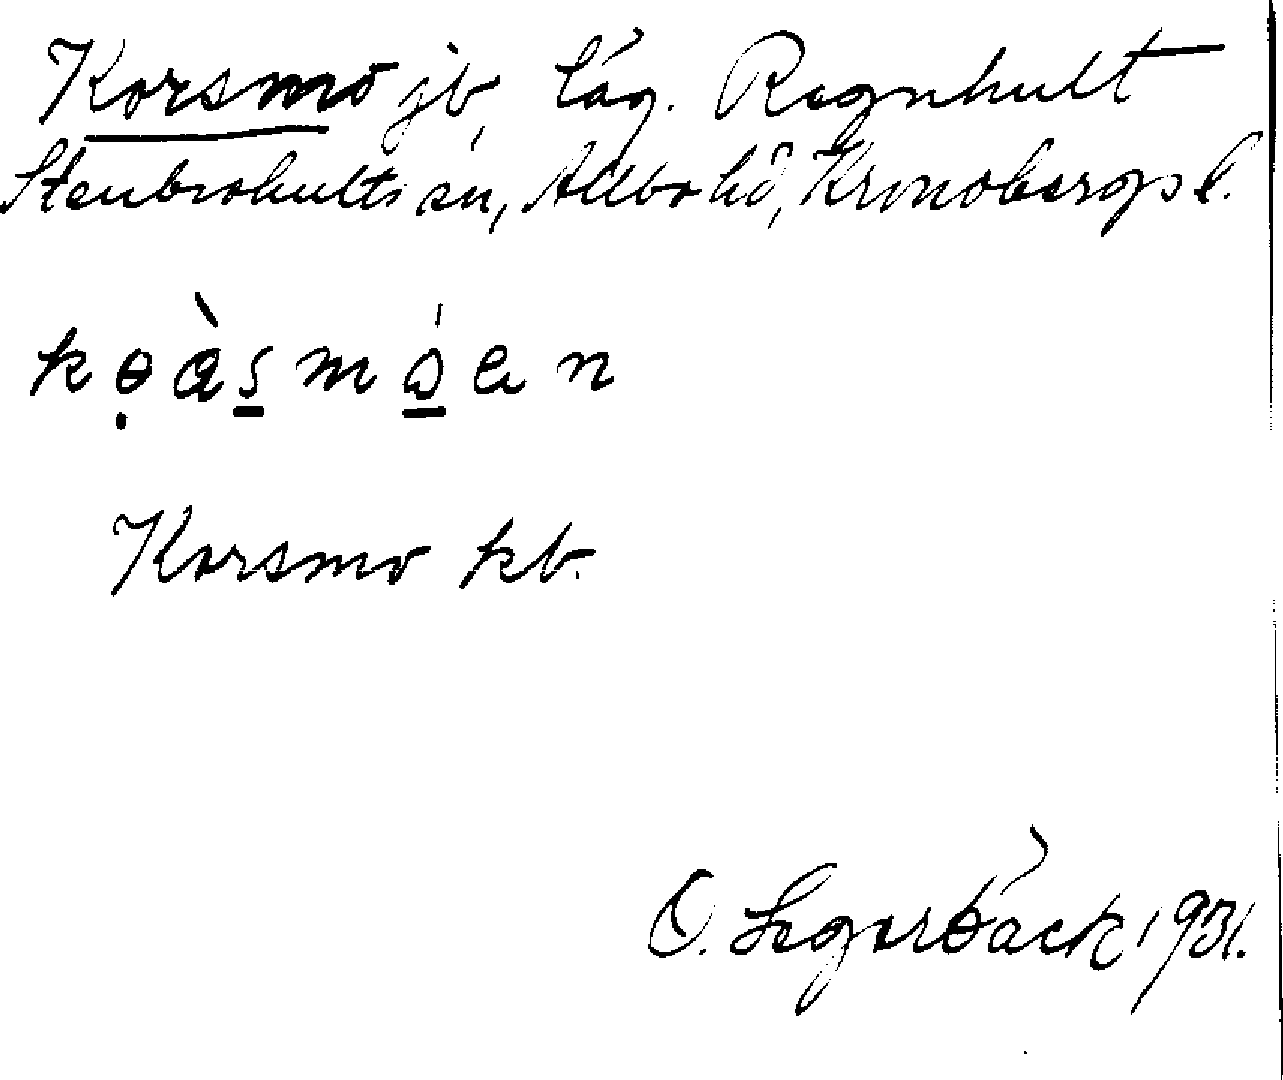 Korsmo jb, läg. Ragnhult
Stenbrohults sn, Allbo hd, Kronobergs l.
kɵ̣àsmóen
Korsmo kb.
O. Segerbäck 1931.